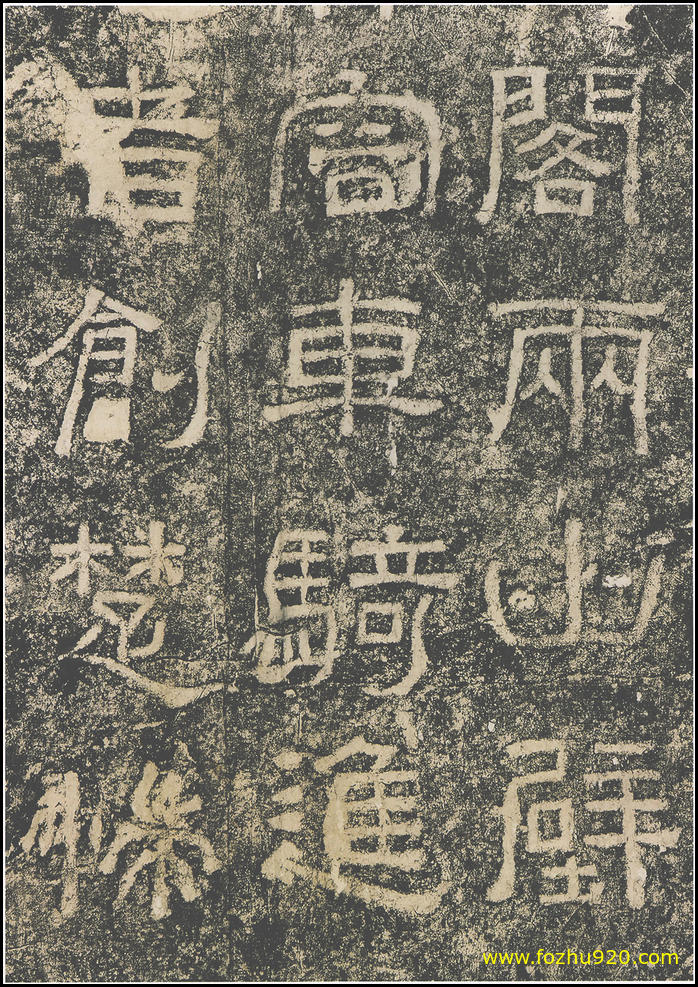 閣兩山壁
車騎進
者創楚
www.fozhu920.com